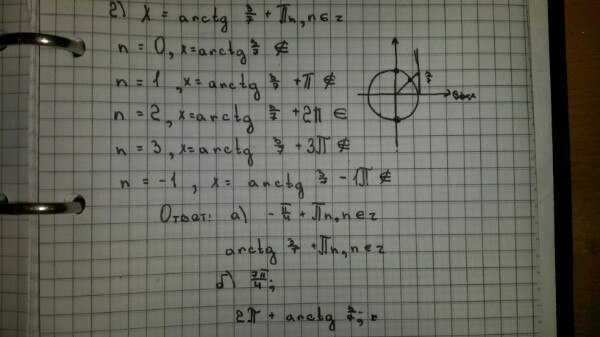 2) x = arctg 3/7 + πn, n ∈ z
n = 0, x = arctg 3/7 ∉
n = 1, x = arctg 3/7 + π ∉
3/7
n = 2, x = arctg 3/7 + 2π ∈
n = 3, x = arctg 3/7 + 3π ∉
n = -1, x = arctg 3/7 - 1π ∉
Ответ: а) - π/4 + πn, n ∈ z
arctg 3/7 + πn, n ∈ z
б) 7π/4;
2π + arctg 3/7;